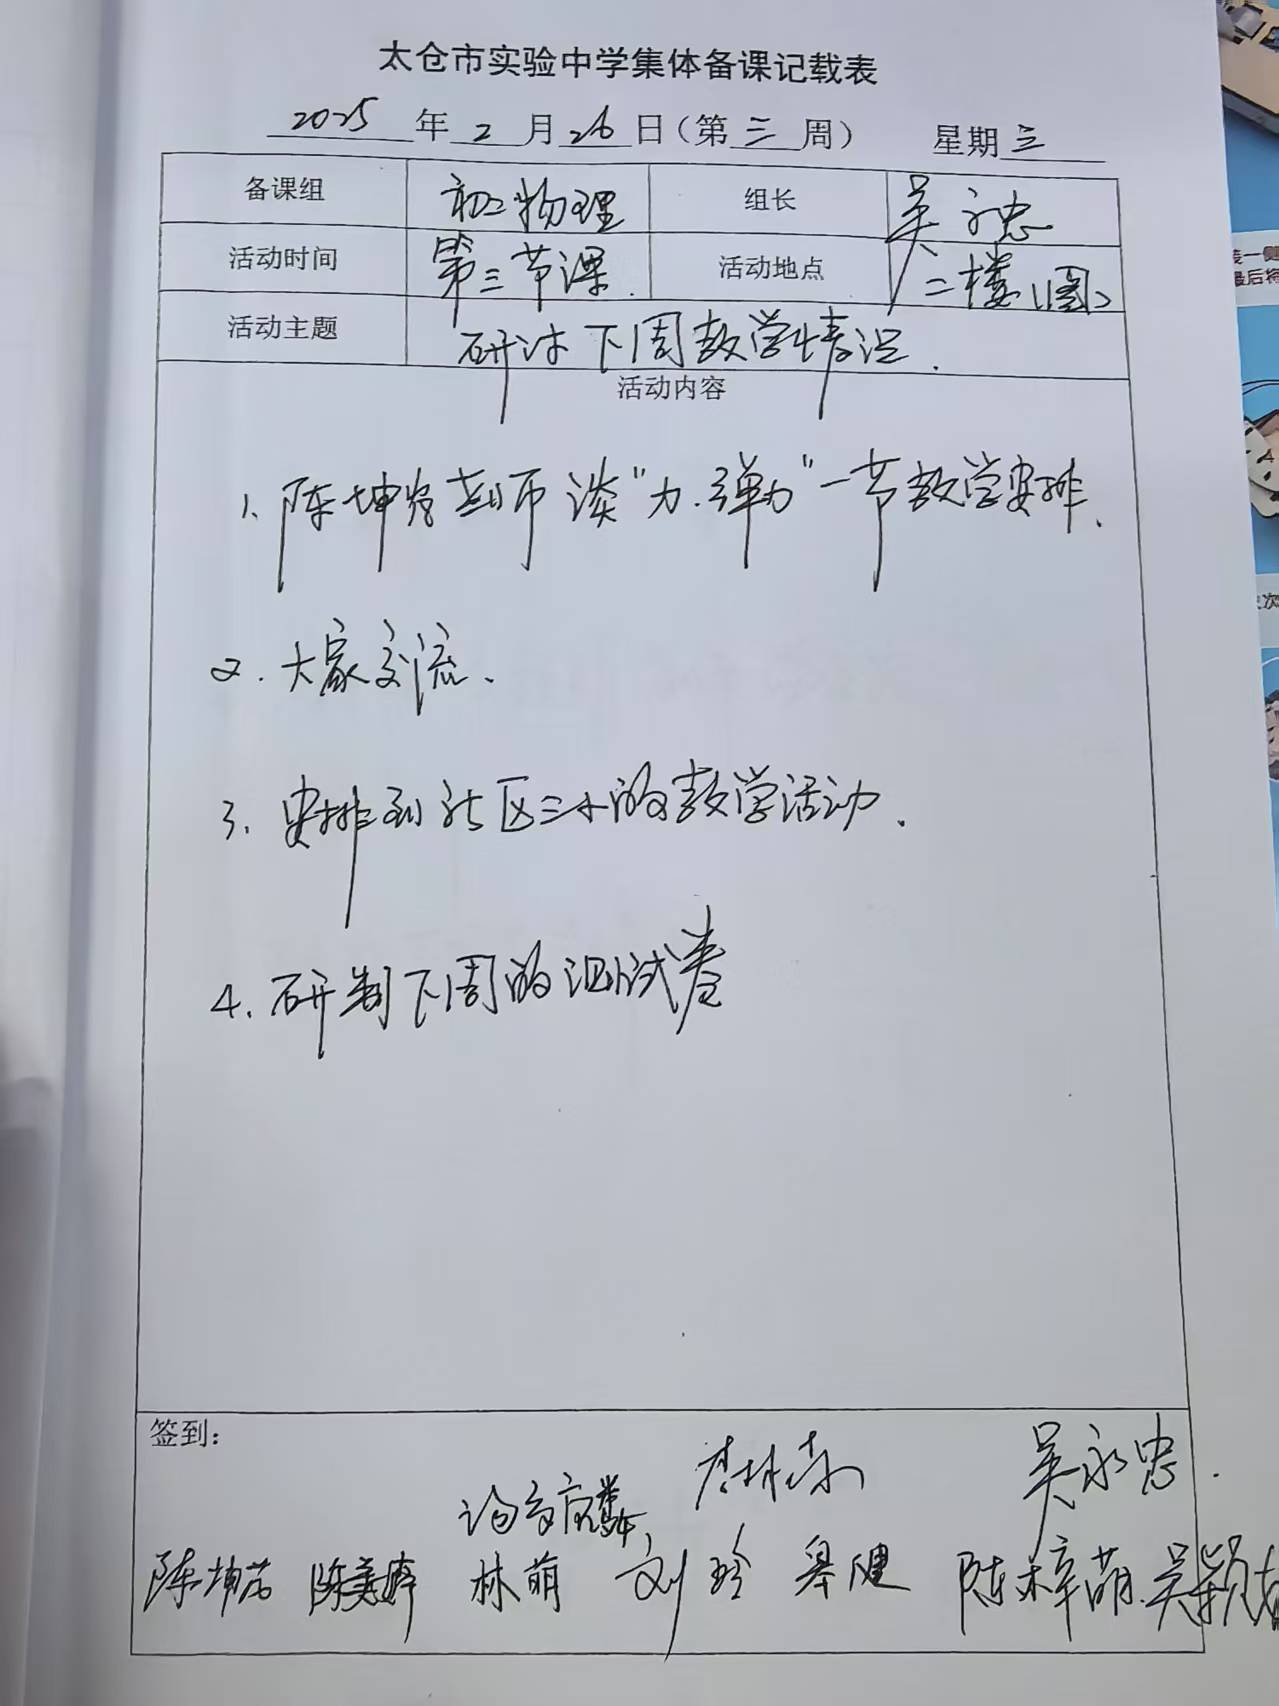 太仓市实验中学集体备课记载表
2025年2月26日（第三周） 星期三
备课组 初二物理 组长 吴永忠
活动时间 第三节课. 活动地点 二楼(图)
活动主题 研讨下周教学情况.
活动内容
1、陈坤 老师谈“力.弹力”一节教学安排.
2.大家交流.
3.安排到社区三小的教学活动.
4.研制下周的测试卷
签到：
吴永忠.
陈坤 陈美婷 林萌 刘玲 陈梓萌 吴颖
装一侧
最后将
次